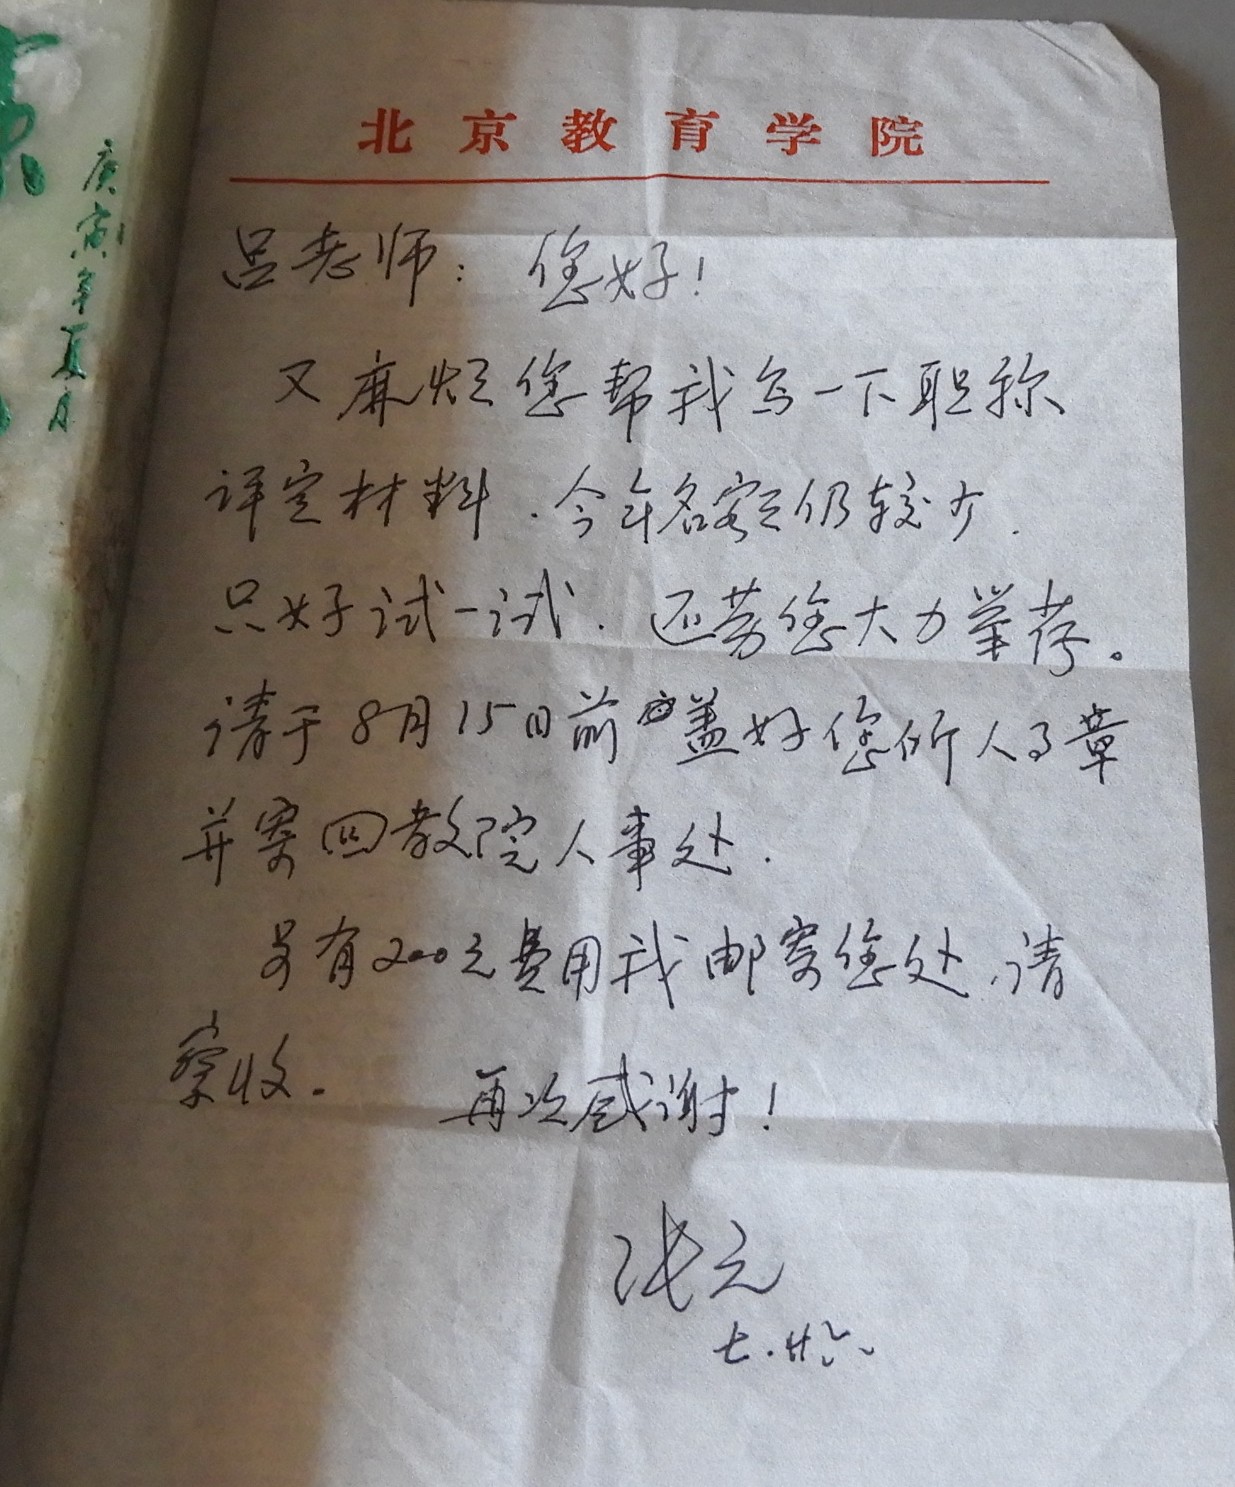 北京教育学院
吕老师：您好！
又麻烦您帮我写一下职称
评定材料.今年名额仍较少.
只好试一试.还劳您大力举荐。
请于8月15日前盖好您所人事章
并寄回教院人事处.
另有200元费用我邮寄您处,请
察收.
再次感谢！
张元
七.廿六
庚寅年夏月